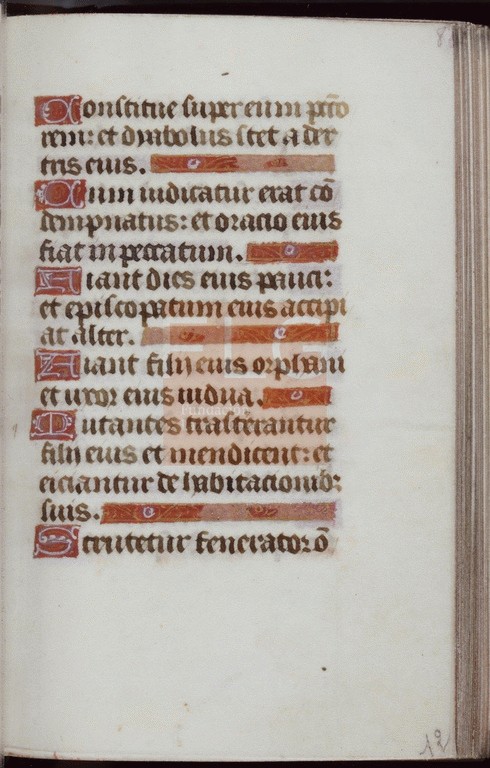 Constitue super eum pecco
rem: et dyabolus stet a dex
tris eius.
Cum iudicatur exat cō
dempnatus: et oracio eius
fiat in peccatum.
Fiant dies eius pauci:
et episcopatum eius accipi
at alter.
Fiant filij eius orphani
et uxor eius uidua.
Nutantes trasferantur
filij eius et mendicent: et
eiciantur de habitacionib:
suis.
Scrutetur fenerator ō
Fundación
12